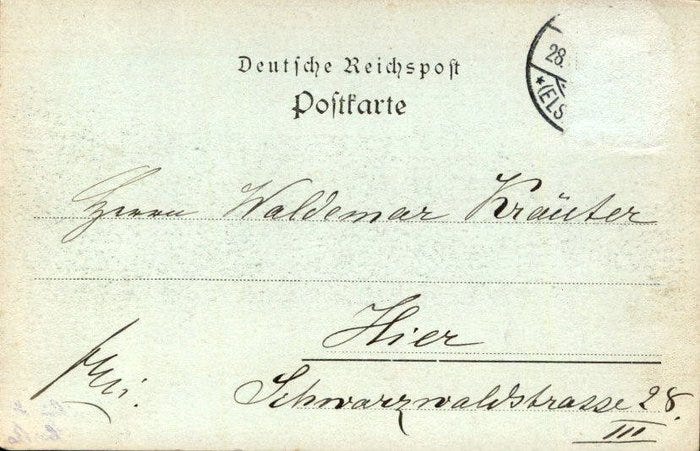 Deutsche Reichspost
Postkarte
28.
*(ELS
Herrn Waldemar Kräuter
Hier
frei.
Schwarzwaldstrasse 28.
III